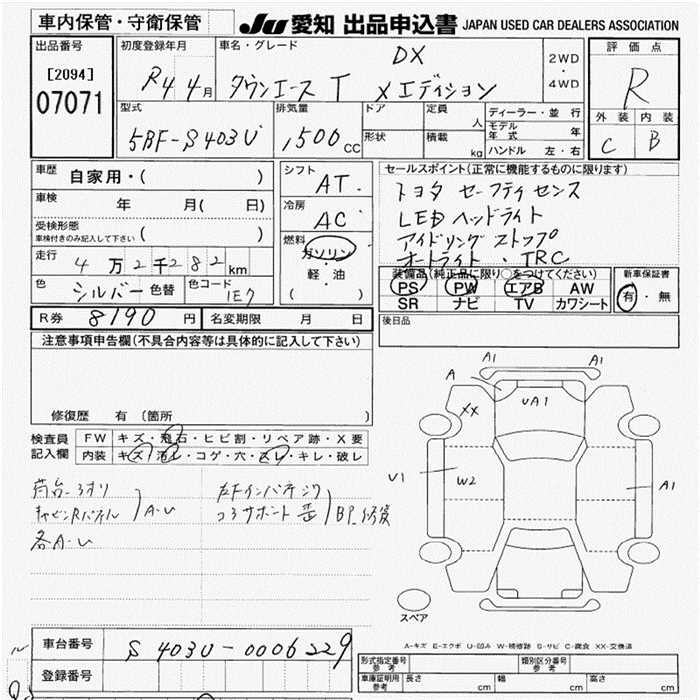 車内保管・守衛保管
JU 愛知 出品申込書 JAPAN USED CAR DEALERS ASSOCIATION
出品番号
[2094]
07071
初度登録年月
R4 4月
車名・グレード
DX
タウンエース T メエディション
2WD
・
4WD
評価点
R
外装 内装
C B
型式
5BF-S403U
排気量
1,500 CC
ドア
形状
定員
人
積載
kg
ディーラー・並行
モデル年式 年
ハンドル 左・右
車歴 自家用・( )
車検 年 月( 日)
受検形態
車検付きのみ記入して下さい ( )
走行 4万2千282km
色 シルバー 色替 色コード 1E7
シフト
AT
冷房
AC
燃料
ガソリン
・
軽・油
( )
セールスポイント(正常に機能するものに限ります)
トヨタ セーフティセンス
LEDヘッドライト
アイドリングストップ
オートライト・TRC
装備品(純正品に限り○をつけてください)
PS PW エアB AW
SR ナビ TV カワシート
新車保証書
有・無
R券 8190円 名変期限 月 日
後日品
注意事項申告欄(不具合内容等は具体的に記入して下さい)
修復歴 有(箇所
検査員記入欄
FW キズ・飛石・ヒビ割・リペア跡・X要
内装 キズ・汚レ・コゲ・穴・スレ・キレ・破レ
荷台-3オリ
キャビンRパネル
A-U
各A-U
左Fインパネ
コアサポート
BP.修復
A
A1
A1
XX
UA1
U1
W2
A1
スペア
A-キズ E-エクボ U-凹み W-補修跡 S-サビ C-腐食 XX-交換済
車台番号 S403U-0006229
登録番号
形式指定番号 参考
類別区分番号 参考
車庫証明用 参考
長さ cm
幅 cm
高さ cm